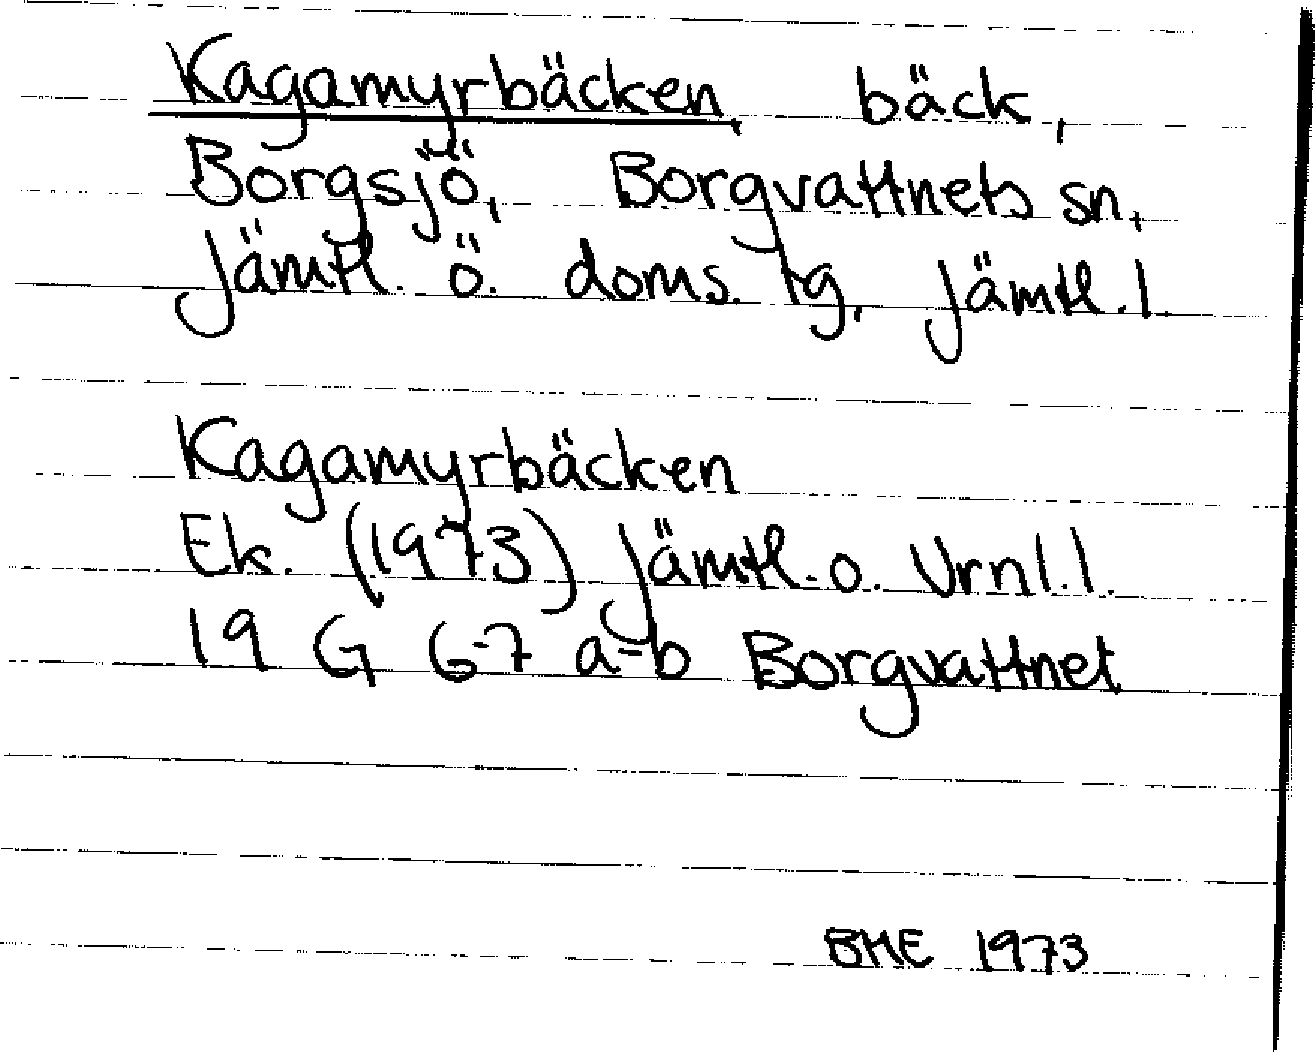 Kagamyrbäcken, bäck,
Borgsjö, Borgvattnets sn,
Jämtl. ö. doms. tg, Jämtl. l.
Kagamyrbäcken
Ek. (1973) Jämtl. o. Vrnl. l.
19 G 6-7 a-b Borgvattnet
BME 1973